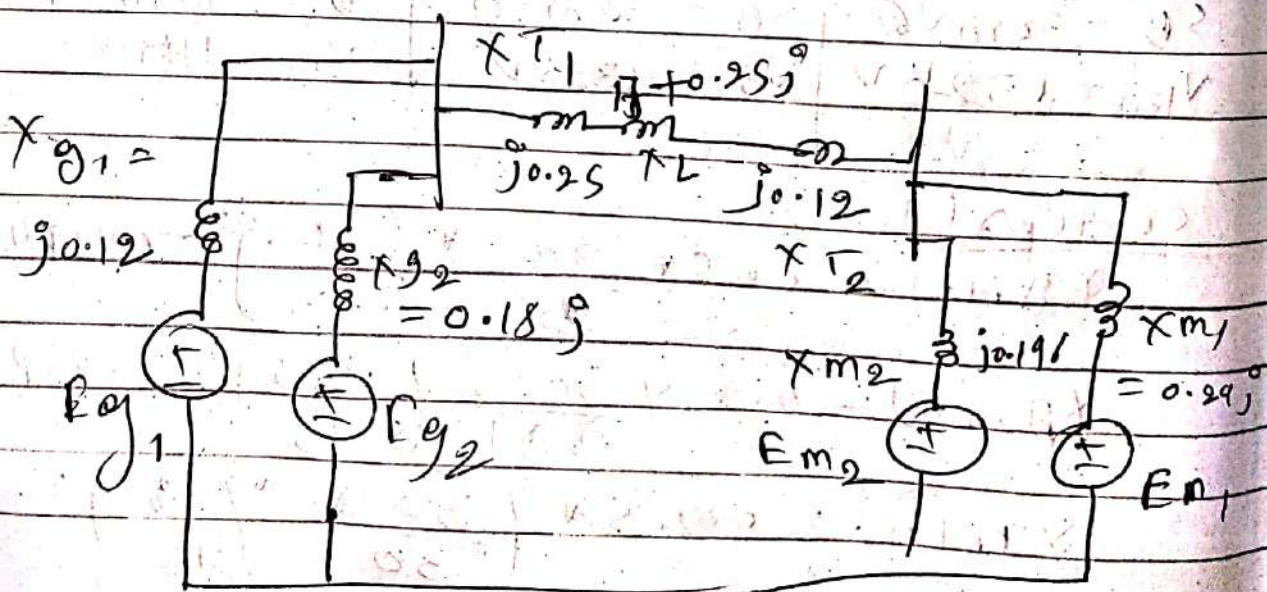 X T1
+0.25j
Xg1 =
j0.25 XL j0.12
j0.12
Xg2
= 0.18j
X T2
Xm2 j0.196
Xm1
= 0.29j
Eg1
Eg2
Em2
Em1